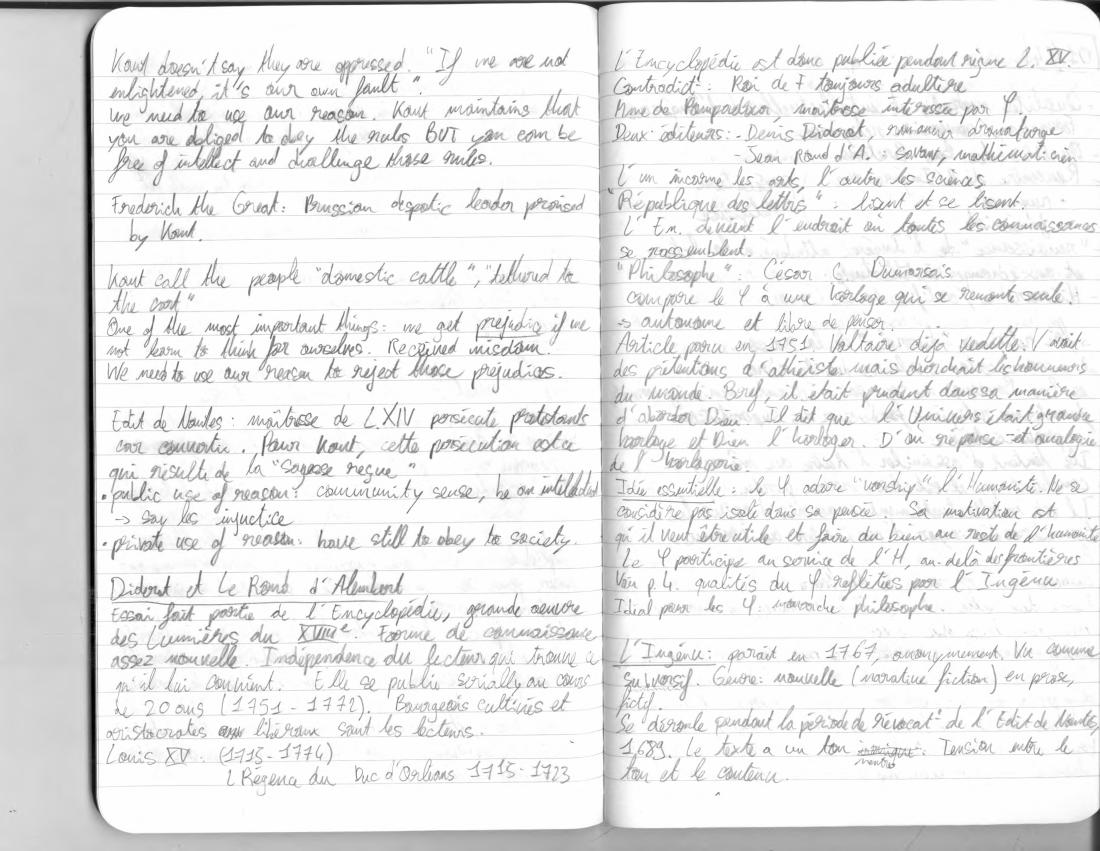 Kant doesn't say they are oppressed. "If we are not
enlightened, it's our own fault".
We need to use our reason. Kant maintains that
you are obliged to obey the rules BUT you can be
free of intellect and challenge those rules.
Frederich the Great: Prussian despotic leader praised
by Kant.
Kant call the people "domestic cattle", "tethered to
the cart"
One of the most important things: we get prejudice if we
not learn to think for ourselves. Received wisdom.
We need to use our reason to reject those prejudices.
Edit de Nantes: maîtresse de LXIV persécute protestants
car convertie. Pour Kant, cette persécution est ce
qui résulte de la "Sagesse reçue"
• public use of reason: community sense, be an intellectual
-> say les injustice
• private use of reason: have still to obey to society.
Diderot et Le Rond d'Alembert
Essai fait partie de l'Encyclopédie, grande oeuvre
des Lumières du XVIIIe. Forme de connaissance
assez nouvelle. Indépendence du lecteur qui trouve ce
qu'il lui convient. Elle se publie serially au cours
de 20 ans (1751-1772). Bourgeois cultivés et
aristocrates libéraux sont les lecteurs.
Louis XV: (1715-1774)
L Régence du Duc d'Orléans 1715-1723
L'Encyclopédie est donc publiée pendant règne L. XV.
Contradict°: Roi de F toujours adultère
Mme de Pompadour, maîtresse intéressée par φ.
Deux éditeurs: - Denis Diderot, romancier dramaturge
- Jean Rond d'A.: savant, mathématicien
L'un incarne les arts, l'autre les sciences.
"République des lettres": lisent et se lisent.
L'En. devient l'endroit où toutes les connaissances
se rassemblent.
"Philosophe": César C. Dumarsais
compare le φ à une horloge qui se remonte seule
-> autonome et libre de penser.
Article paru en 1751. Voltaire déjà vedette. V avait
des prétentions d'athéiste mais cherchait les honneurs
du monde. Bref, il était prudent dans sa manière
d'aborder Dieu. Il dit que l'Univers était grande
horloge et Dieu l'horloger. D'où reponse et analogie
de l'horlogerie.
Idée essentielle: le φ adore "worship" l'Humanité. Ne se
considère pas isolé dans sa pensée. Sa motivation est
qu'il veut être utile et faire du bien au reste de l'humanité
Le φ participe au service de l'H, au-delà des frontières
Voir p.4. qualités du φ reflétées par l'Ingénu
Idéal pour les φ: monarche philosophe.
L'Ingénu: parait en 1767, anonymement. Vu comme
subversif. Genre: nouvelle (narative fiction) en prose,
fictif.
Se déroule pendant la période de révocat° de l'Edit de Nantes,
1689. Le texte a un ton. Tension entre le
ton et le contenu.